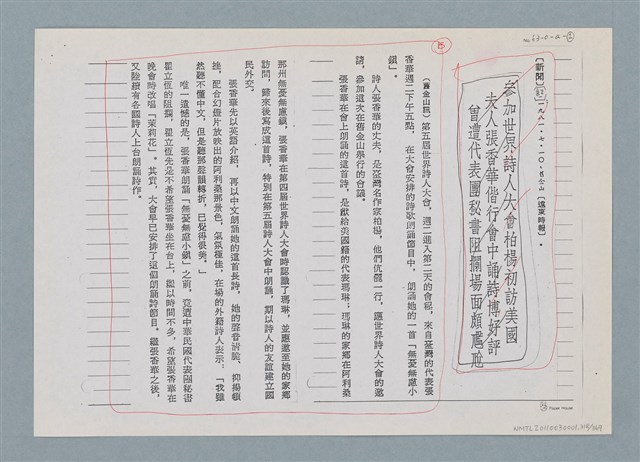 no 63-e-a-①
〔新聞〕一九八一・七・一〇・〔遠東時報〕。
參加世界詩人大會柏楊初訪美國
夫人張香華偕行會中誦詩博好評
曾遭代表團秘書阻攔場面頗尷尬
（舊金山訊）第五屆世界詩人大會，週二進入第二天的會程，來自臺灣的代表張
香華週二下午五點，在大會安排的詩歌朗誦節目中，朗誦她的一首「無憂無慮小
鎮」。
詩人張香華的丈夫，是臺灣名作家柏楊，他們伉儷一行，應世界詩人大會的邀
請，參加這次在舊金山舉行的會議。
張香華在會上朗誦的這首詩，是獻給美國籍的代表瑪琳；瑪琳的家鄉在阿利桑
那州無憂無慮鎮，張香華在第四屆世界詩人大會時認識了瑪琳，並應邀至她的家鄉
訪問，歸來後寫成這首詩，特別在第五屆詩人大會中朗誦，期以詩人的友誼建立國
民外交。
張香華先以英語介紹，再以中文朗誦她的這首長詩，她的聲音清脆，抑揚頓
挫，配合幻燈片放映出的阿利桑那景色，氣氛極佳，在場的外籍詩人表示：「我雖
然聽不懂中文，但是聽那聲韻轉折，已覺得很美。」
唯一遺憾的是，張香華朗誦「無憂無慮小鎮」之前，竟遭中華民國代表團秘書
瞿立恆的阻攔，瞿立恆先是不希望張香華坐在台上，繼以時間不多，希望張香華在
晚會時改唱「茉莉花」。其實，大會早已安排了這個朗誦詩節目。繼張香華之後，
又陸續有各國詩人上台朗誦詩作。
Paper House
NMTL20110030001